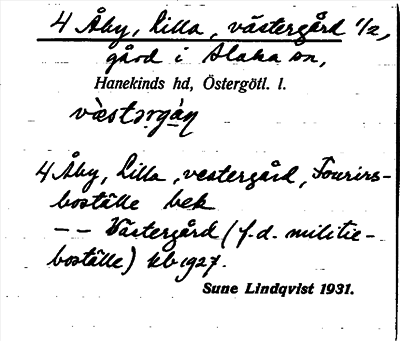 4 Åby, Lilla, västergård 1/2,
gård i Slaka sn,
Hanekinds hd, Östergötl. l.
västərgán
4 Åby, Lilla, vestergård, Fourirs-
boställe bek
– – Västergård (f.d. militie-
boställe) kb 1927.
Sune Lindqvist 1931.